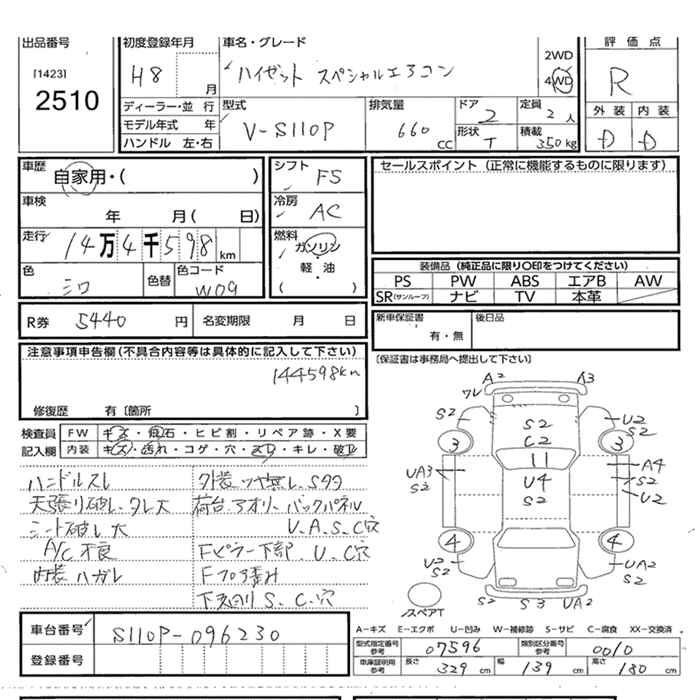 出品番号 初度登録年月 車名・グレード 評価点
[1423] H8 月 ハイゼット スペシャルエアコン 2WD 4WD R
2510
ディーラー・並行 型式 排気量 ドア 2 定員 2人 外装 内装
モデル年式 年 V-S110P 660 CC 形状 T 積載 350kg D D
ハンドル 左・右
車歴 自家用・( ) シフト F5 セールスポイント (正常に機能するものに限ります)
車検 年 月( 日) 冷房 AC
走行 14万4千598km 燃料 ガソリン・軽油 ( )
色 シロ 色替 色コード W09
装備品 (純正品に限り○印をつけてください)
PS PW ABS エアB AW
SR(サンルーフ) ナビ TV 本革
R券 5440円 名変期限 月 日 新車保証書 有・無 後日品
注意事項申告欄(不具合内容等は具体的に記入して下さい) [保証書は事務局へ提出して下さい]
144598km
修復歴 有 [箇所 ]
検査員 FW キズ・飛石・ヒビ割・リペア跡・X要
記入欄 内装 キズ・汚れ・コゲ・穴・スレ・キレ・破れ
ハンドルスレ 外装ツヤ無し、Sタタ
天張り破レ、タレ大 荷台アオリ、バックパネル
シート破レ大 U、A、S、C穴
A/C不良 Fピラー下部、U、C穴
内装ハガレ Fフロア歪み
下廻りS、C、穴
A2 A3
ワレ
S2 S2 U2
C2 S2
3 3
11
UA3 U4 A4
S2 S2 S2
U2
4 4
U2 UA2
S2 S2
S2 S3 UA2
スペアT
車台番号 S110P-096230
登録番号
A-キズ E-エクボ U-凹み W-補修跡 S-サビ C-腐食 XX-交換済
型式指定番号 参考 07596 類別区分番号 参考 0010
車庫証明用 参考 長さ 329cm 幅 139cm 高さ 180cm